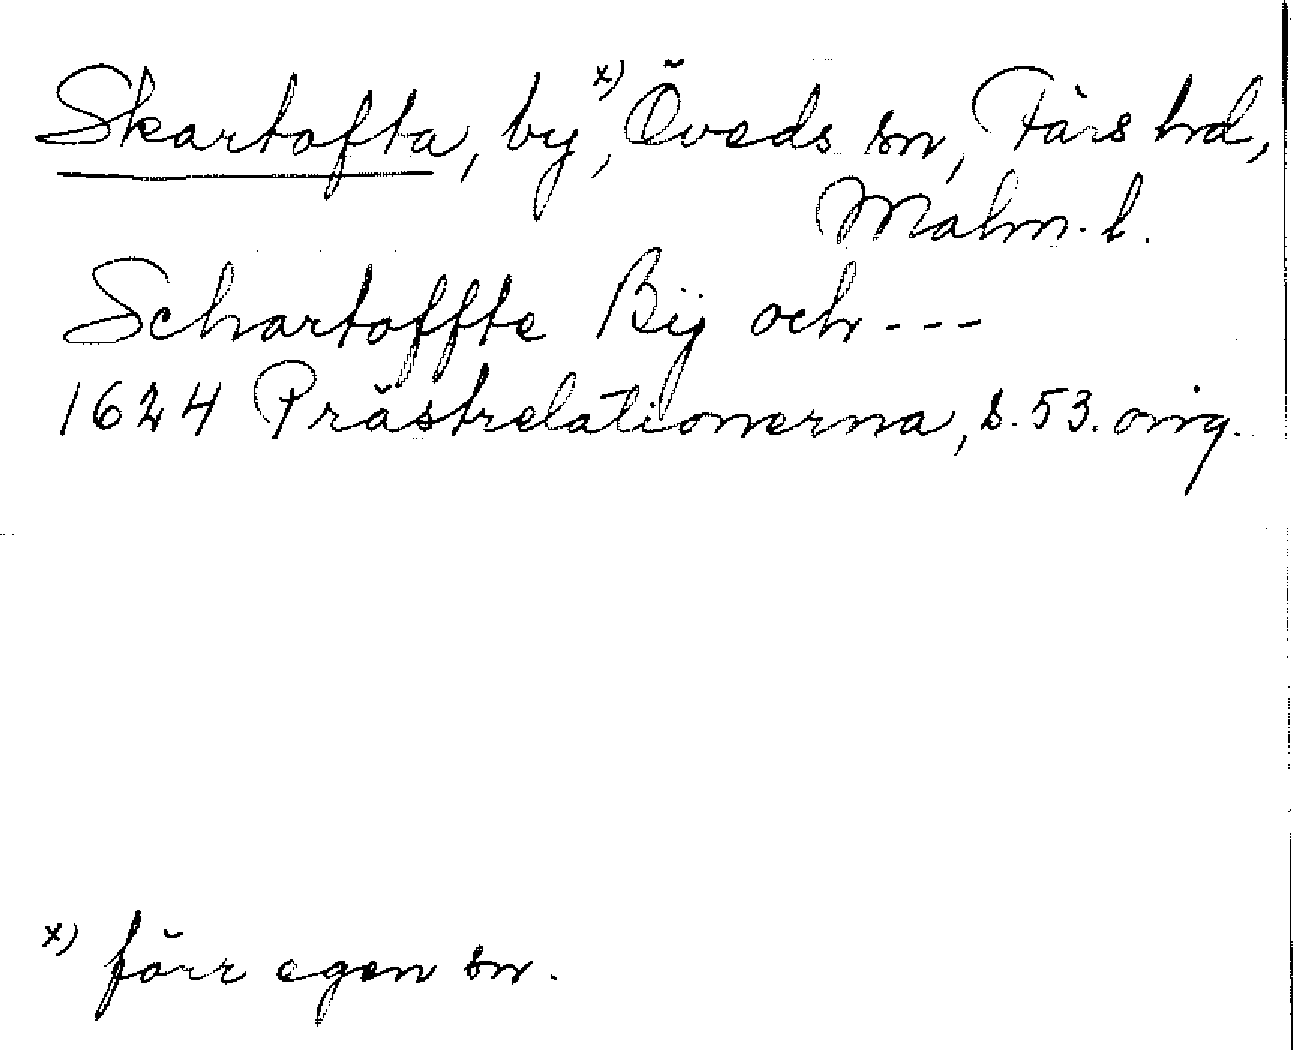 Skartofta, by,x) Öveds sn, Färs hd,
Malm. l.
Schartoffte Bÿ och ---
1624 Prästrelationerna, s. 53. orig.
x) förr egen sn.